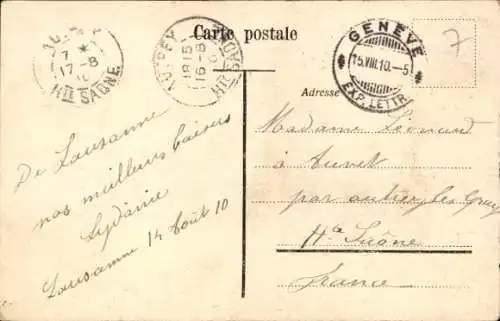 Carte postale
GENÈVE
15.VIII.10.-5
EXP. LETTR.
7
AUTREY
1815
16-8
10
HTE SAONE
17-8
10
HTE SAONE
Adresse
De Lausanne
nos meilleurs baisers
Lydanie
Lausanne 14 Août 10
Madame Leonard
à Auvet
par autrey les Gray
Hte Saône
France